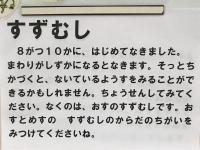 すずむし
８がつ１０かに、はじめてなきました。
まわりがしずかになるとなきます。そっとち
かづくと、ないているようすをみることがで
きるかもしれません。ちょうせんしてみてく
ださい。なくのは、おすのすずむしです。お
すとめすの　すずむしのからだのちがいを
みつけてくださいね。